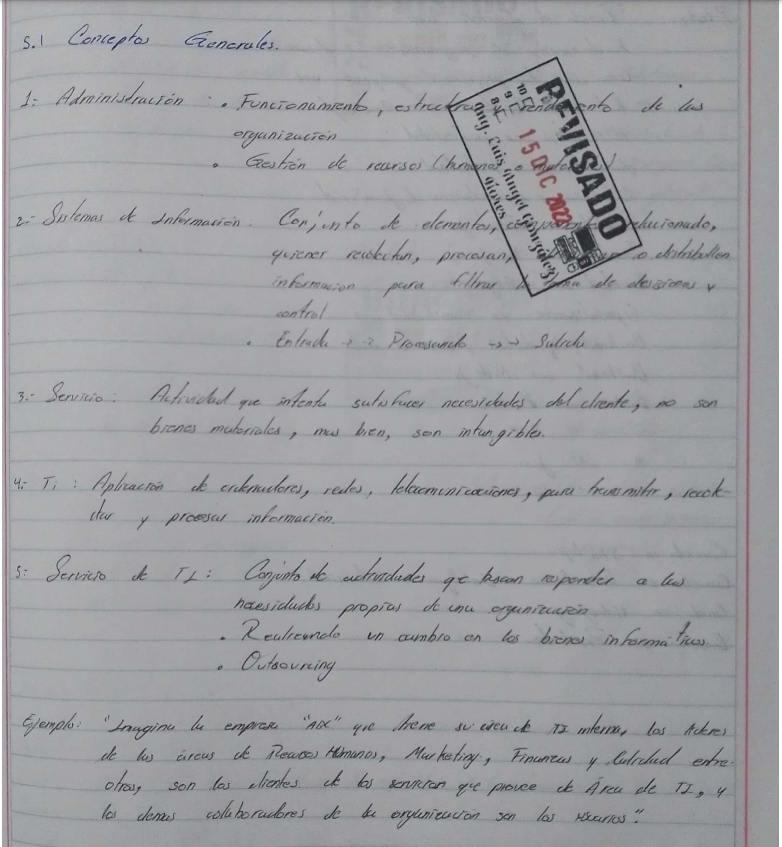 5.1 Conceptos Generales.
1- Administración : • Funcionamiento, estructura y rendimiento de las
organización
• Gestión de recursos (humanos o materiales)
2- Sistemas de Información. Conjunto de elementos, componentes relacionado,
quienes recolectan, procesan, o distribullen
información para filtrar la toma de desiciones y
control
• Entrada → → Procesando → → Salida
3.- Servicio: Actividad que intenta satisfacer necesidades del cliente, no son
bienes materiales, mas bien, son intangibles.
4- Ti : Aplicación de ordenadores, redes, telecomunicaciones, para transmitir, recole-
ctar y procesar información.
5- Servicio de TI: Conjunto de actividades que buscan responder a las
necesidades propias de una organización
• Realizando un cambio en los bienes informáticos.
• Outsourcing
Ejemplo: "Imagina la empresa "ABX" que tiene su área de TI interna, los líderes
de las áreas de Recursos Humanos, Marketing, Finanzas y Calidad entre
otros, son los clientes de los servicios que provee de Área de TI, y
los demas colaboradores de la organización son los usuarios".
REVISADO
15 DIC 2022
10
9
8
Ing. Luis Angel González
Flores